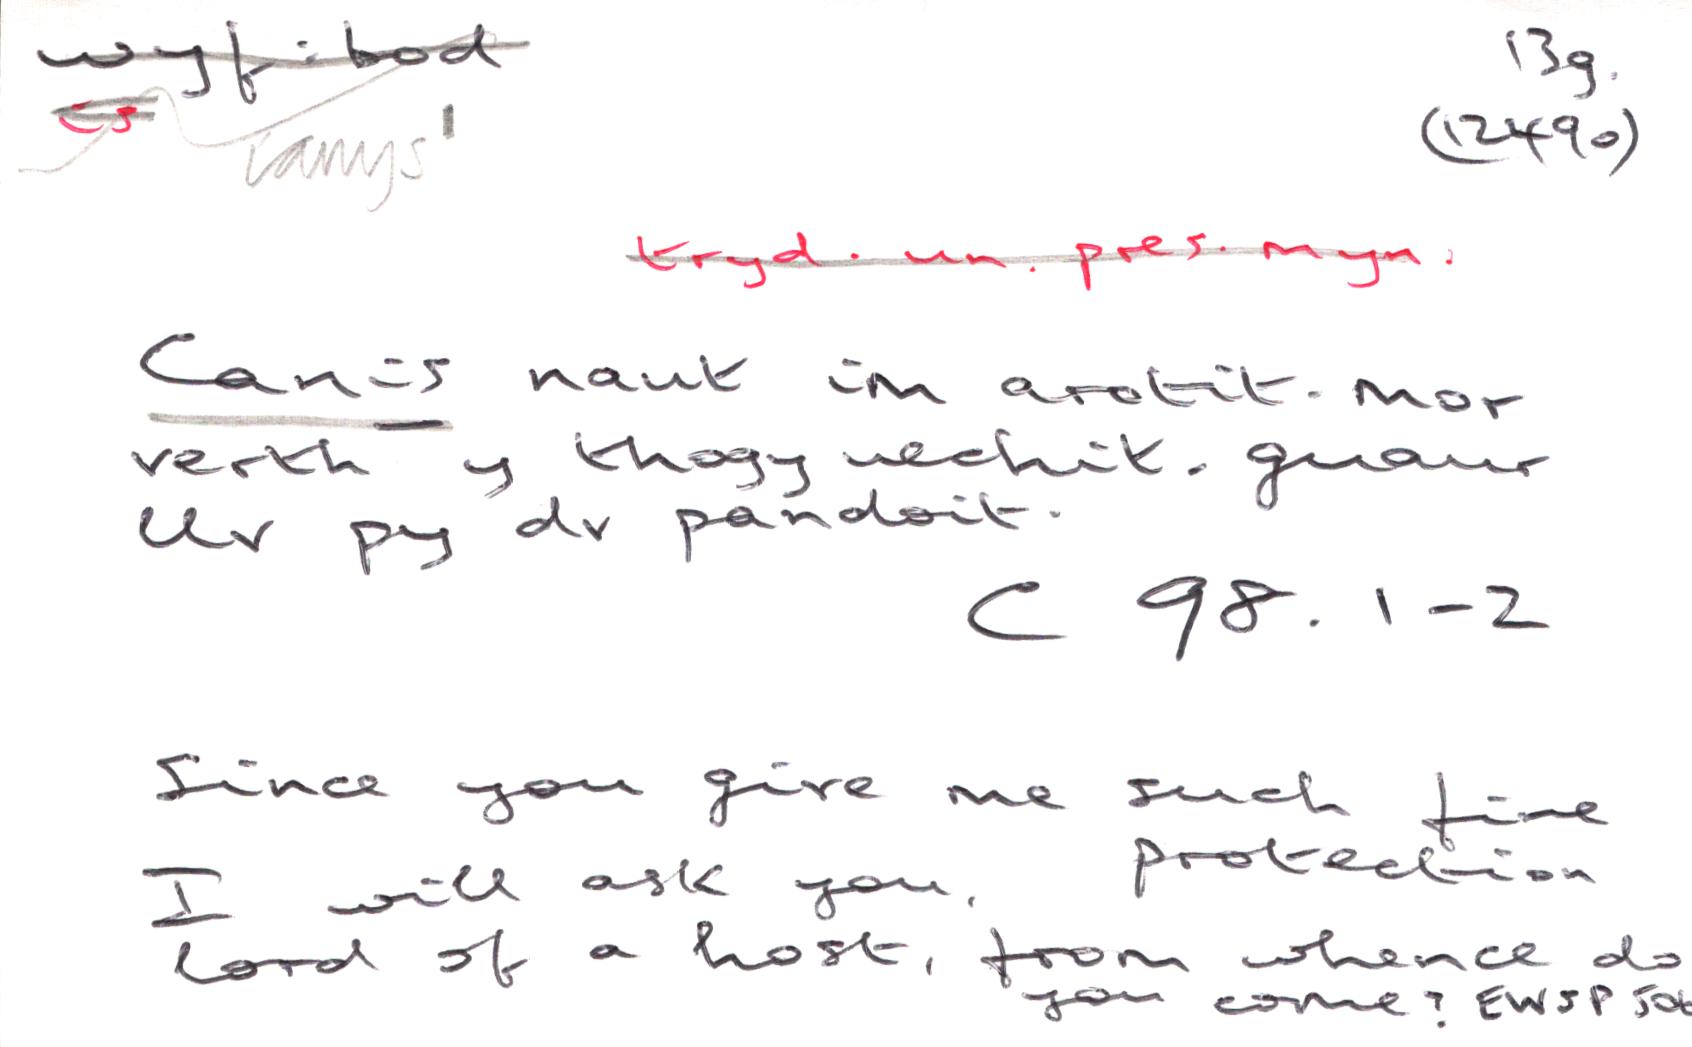 wyf: bod
13g.
ys
canys¹
(1249o)
tryd. un. pres. myn.
Canis naut im arotit. Mor
verth y thogyuechit. guaur
llv py dv pandoit.
C 98. 1-2
Since you give me such fine
protection
I will ask you,
Lord of a host, from whence do
you come? EWSP 506